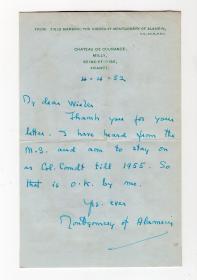 FROM: FIELD MARSHAL THE VISCOUNT MONTGOMERY OF ALAMEIN,
CHATEAU DE COURANCE,
MILLY,
SEINE-ET-OISE,
FRANCE.
4.4.52
My dear
Thank you for your
letter. I have heard from the
M.S. and am to stay on
as Col. Comdt till 1955. So
that is O.K. by me.
Yrs. ever
Montgomery of Alamein